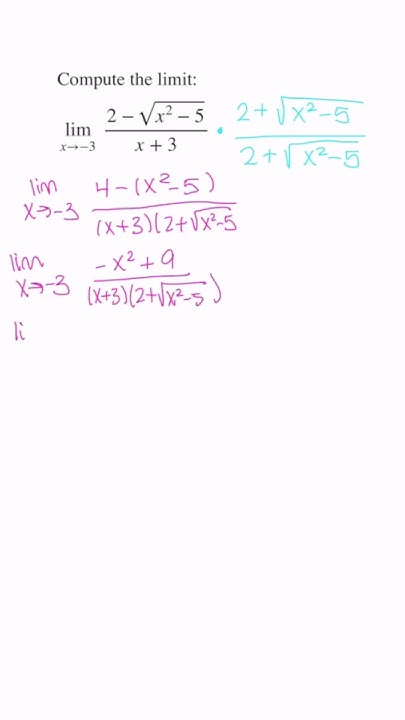 Compute the limit:
lim x→−3 (2 − √(x² − 5))/(x + 3) · (2 + √(x² − 5))/(2 + √(x² − 5))
lim x→-3 (4 - (x² - 5))/((x+3)(2+√(x²-5)
lim x→-3 (-x² + 9)/((x+3)(2+√(x²-5))
li